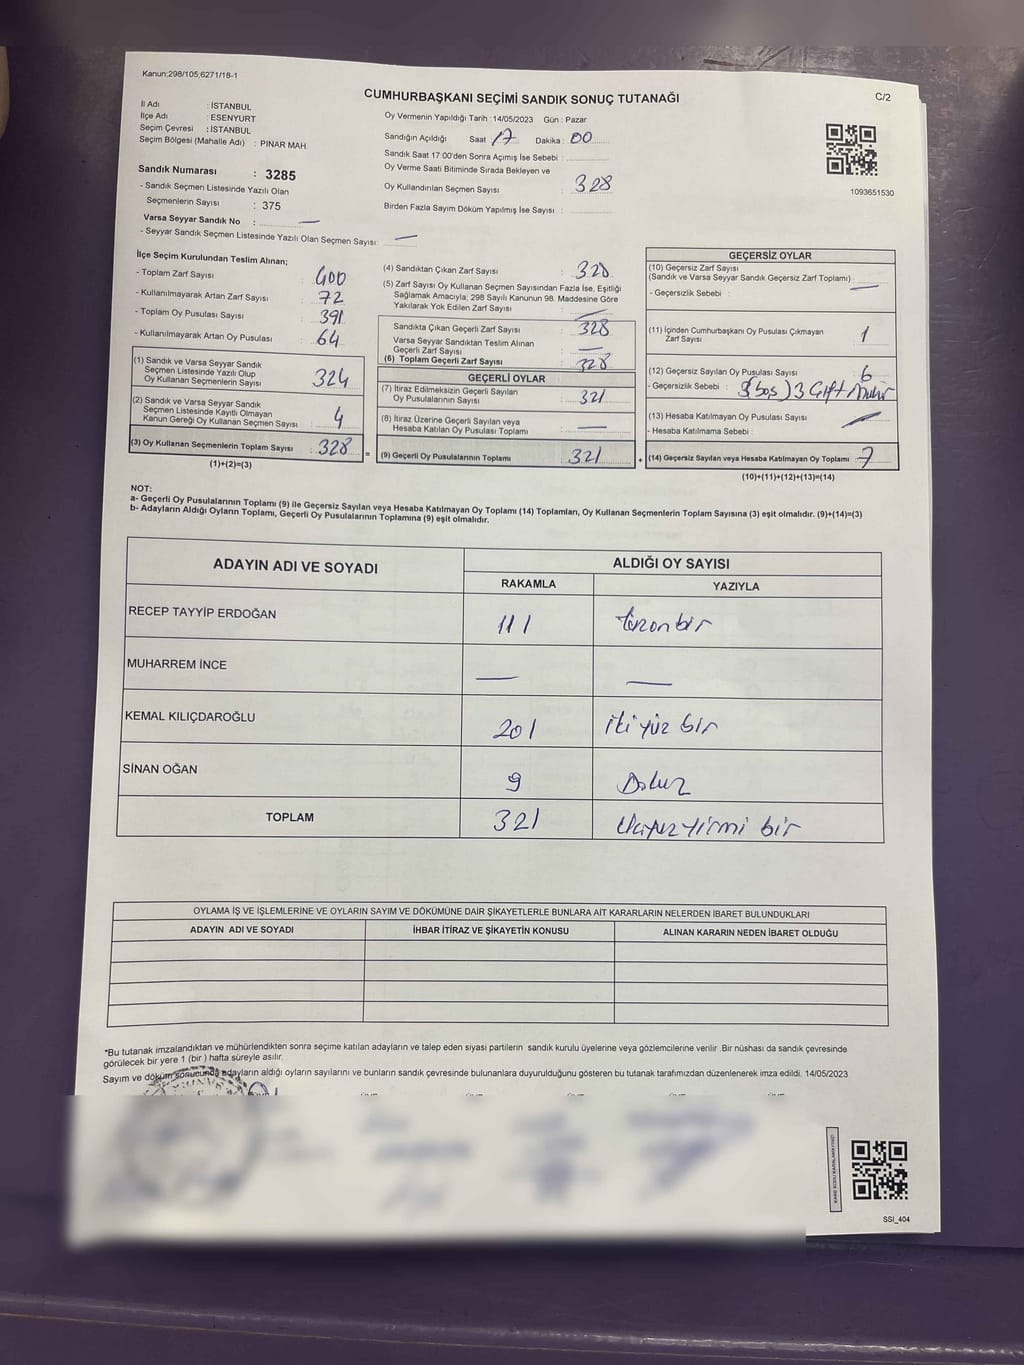 Kanun;298/105,6271/18-1
CUMHURBAŞKANI SEÇİMİ SANDIK SONUÇ TUTANAĞI
C/2
İl Adı : İSTANBUL
İlçe Adı : ESENYURT
Seçim Çevresi : İSTANBUL
Seçim Bölgesi (Mahalle Adı) : PINAR MAH.
Oy Vermenin Yapıldığı Tarih :14/05/2023 Gün : Pazar
Sandığın Açıldığı Saat 17 Dakika : 00
Sandık Saat 17.00'den Sonra Açımış İse Sebebi :
Oy Verme Saati Bitiminde Sırada Bekleyen ve
Oy Kullandırılan Seçmen Sayısı 328
Birden Fazla Sayım Döküm Yapılmış İse Sayısı :
1093651530
Sandık Numarası : 3285
- Sandık Seçmen Listesinde Yazılı Olan
Seçmenlerin Sayısı : 375
Varsa Seyyar Sandık No : —
- Seyyar Sandık Seçmen Listesinde Yazılı Olan Seçmen Sayısı: —
İlçe Seçim Kurulundan Teslim Alınan;
- Toplam Zarf Sayısı : 400
- Kullanılmayarak Artan Zarf Sayısı : 72
- Toplam Oy Pusulası Sayısı : 391
- Kullanılmayarak Artan Oy Pusulası : 64
(1) Sandık ve Varsa Seyyar Sandık
Seçmen Listesinde Yazılı Olup
Oy Kullanan Seçmenlerin Sayısı : 324
(2) Sandık ve Varsa Seyyar Sandık
Seçmen Listesinde Kayıtlı Olmayan
Kanun Gereği Oy Kullanan Seçmen Sayısı : 4
(3) Oy Kullanan Seçmenlerin Toplam Sayısı : 328
(1)+(2)=(3)
=
(4) Sandıktan Çıkan Zarf Sayısı : 328
(5) Zarf Sayısı Oy Kullanan Seçmen Sayısından Fazla İse, Eşitliği
Sağlamak Amacıyla; 298 Sayılı Kanunun 98. Maddesine Göre
Yakılarak Yok Edilen Zarf Sayısı : —
Sandıkta Çıkan Geçerli Zarf Sayısı : 328
Varsa Seyyar Sandıktan Teslim Alınan
Geçerli Zarf Sayısı : —
(6) Toplam Geçerli Zarf Sayısı : 328
GEÇERLİ OYLAR
(7) İtiraz Edilmeksizin Geçerli Sayılan
Oy Pusulalarının Sayısı : 321
(8) İtiraz Üzerine Geçerli Sayılan veya
Hesaba Katılan Oy Pusulası Toplamı : —
(9) Geçerli Oy Pusulalarının Toplamı : 321
+
GEÇERSİZ OYLAR
(10) Geçersiz Zarf Sayısı
(Sandık ve Varsa Seyyar Sandık Geçersiz Zarf Toplamı) : —
- Geçersizlik Sebebi :
(11) İçinden Cumhurbaşkanı Oy Pusulası Çıkmayan
Zarf Sayısı : 1
(12) Geçersiz Sayılan Oy Pusulası Sayısı : 6
- Geçersizlik Sebebi : 3(boş) 3 Çift Mühür
(13) Hesaba Katılmayan Oy Pusulası Sayısı : —
- Hesaba Katılmama Sebebi :
(14) Geçersiz Sayılan veya Hesaba Katılmayan Oy Toplamı : 7
(10)+(11)+(12)+(13)=(14)
NOT:
a- Geçerli Oy Pusulalarının Toplamı (9) ile Geçersiz Sayılan veya Hesaba Katılmayan Oy Toplamı (14) Toplamları, Oy Kullanan Seçmenlerin Toplam Sayısına (3) eşit olmalıdır. (9)+(14)=(3)
b- Adayların Aldığı Oyların Toplamı, Geçerli Oy Pusulalarının Toplamına (9) eşit olmalıdır.
ADAYIN ADI VE SOYADI
ALDIĞI OY SAYISI
RAKAMLA YAZIYLA
RECEP TAYYİP ERDOĞAN 111 yüzonbir
MUHARREM İNCE — —
KEMAL KILIÇDAROĞLU 201 iki yüz bir
SİNAN OĞAN 9 Dokuz
TOPLAM 321 Üçyüzyirmi bir
OYLAMA İŞ VE İŞLEMLERİNE VE OYLARIN SAYIM VE DÖKÜMÜNE DAİR ŞİKAYETLERLE BUNLARA AİT KARARLARIN NELERDEN İBARET BULUNDUKLARI
ADAYIN ADI VE SOYADI İHBAR İTİRAZ VE ŞİKAYETİN KONUSU ALINAN KARARIN NEDEN İBARET OLDUĞU
*Bu tutanak imzalandıktan ve mühürlendikten sonra seçime katılan adayların ve talep eden siyasi partilerin sandık kurulu üyelerine veya gözlemcilerine verilir .Bir nüshası da sandık çevresinde
görülecek bir yere 1 (bir ) hafta süreyle asılır.
Sayım ve döküm sonucunda adayların aldığı oyların sayılarını ve bunların sandık çevresinde bulunanlara duyurulduğunu gösteren bu tutanak tarafımızdan düzenlenerek imza edildi. 14/05/2023
KARE KODU KARALAMAYINIZ!
SSI_404